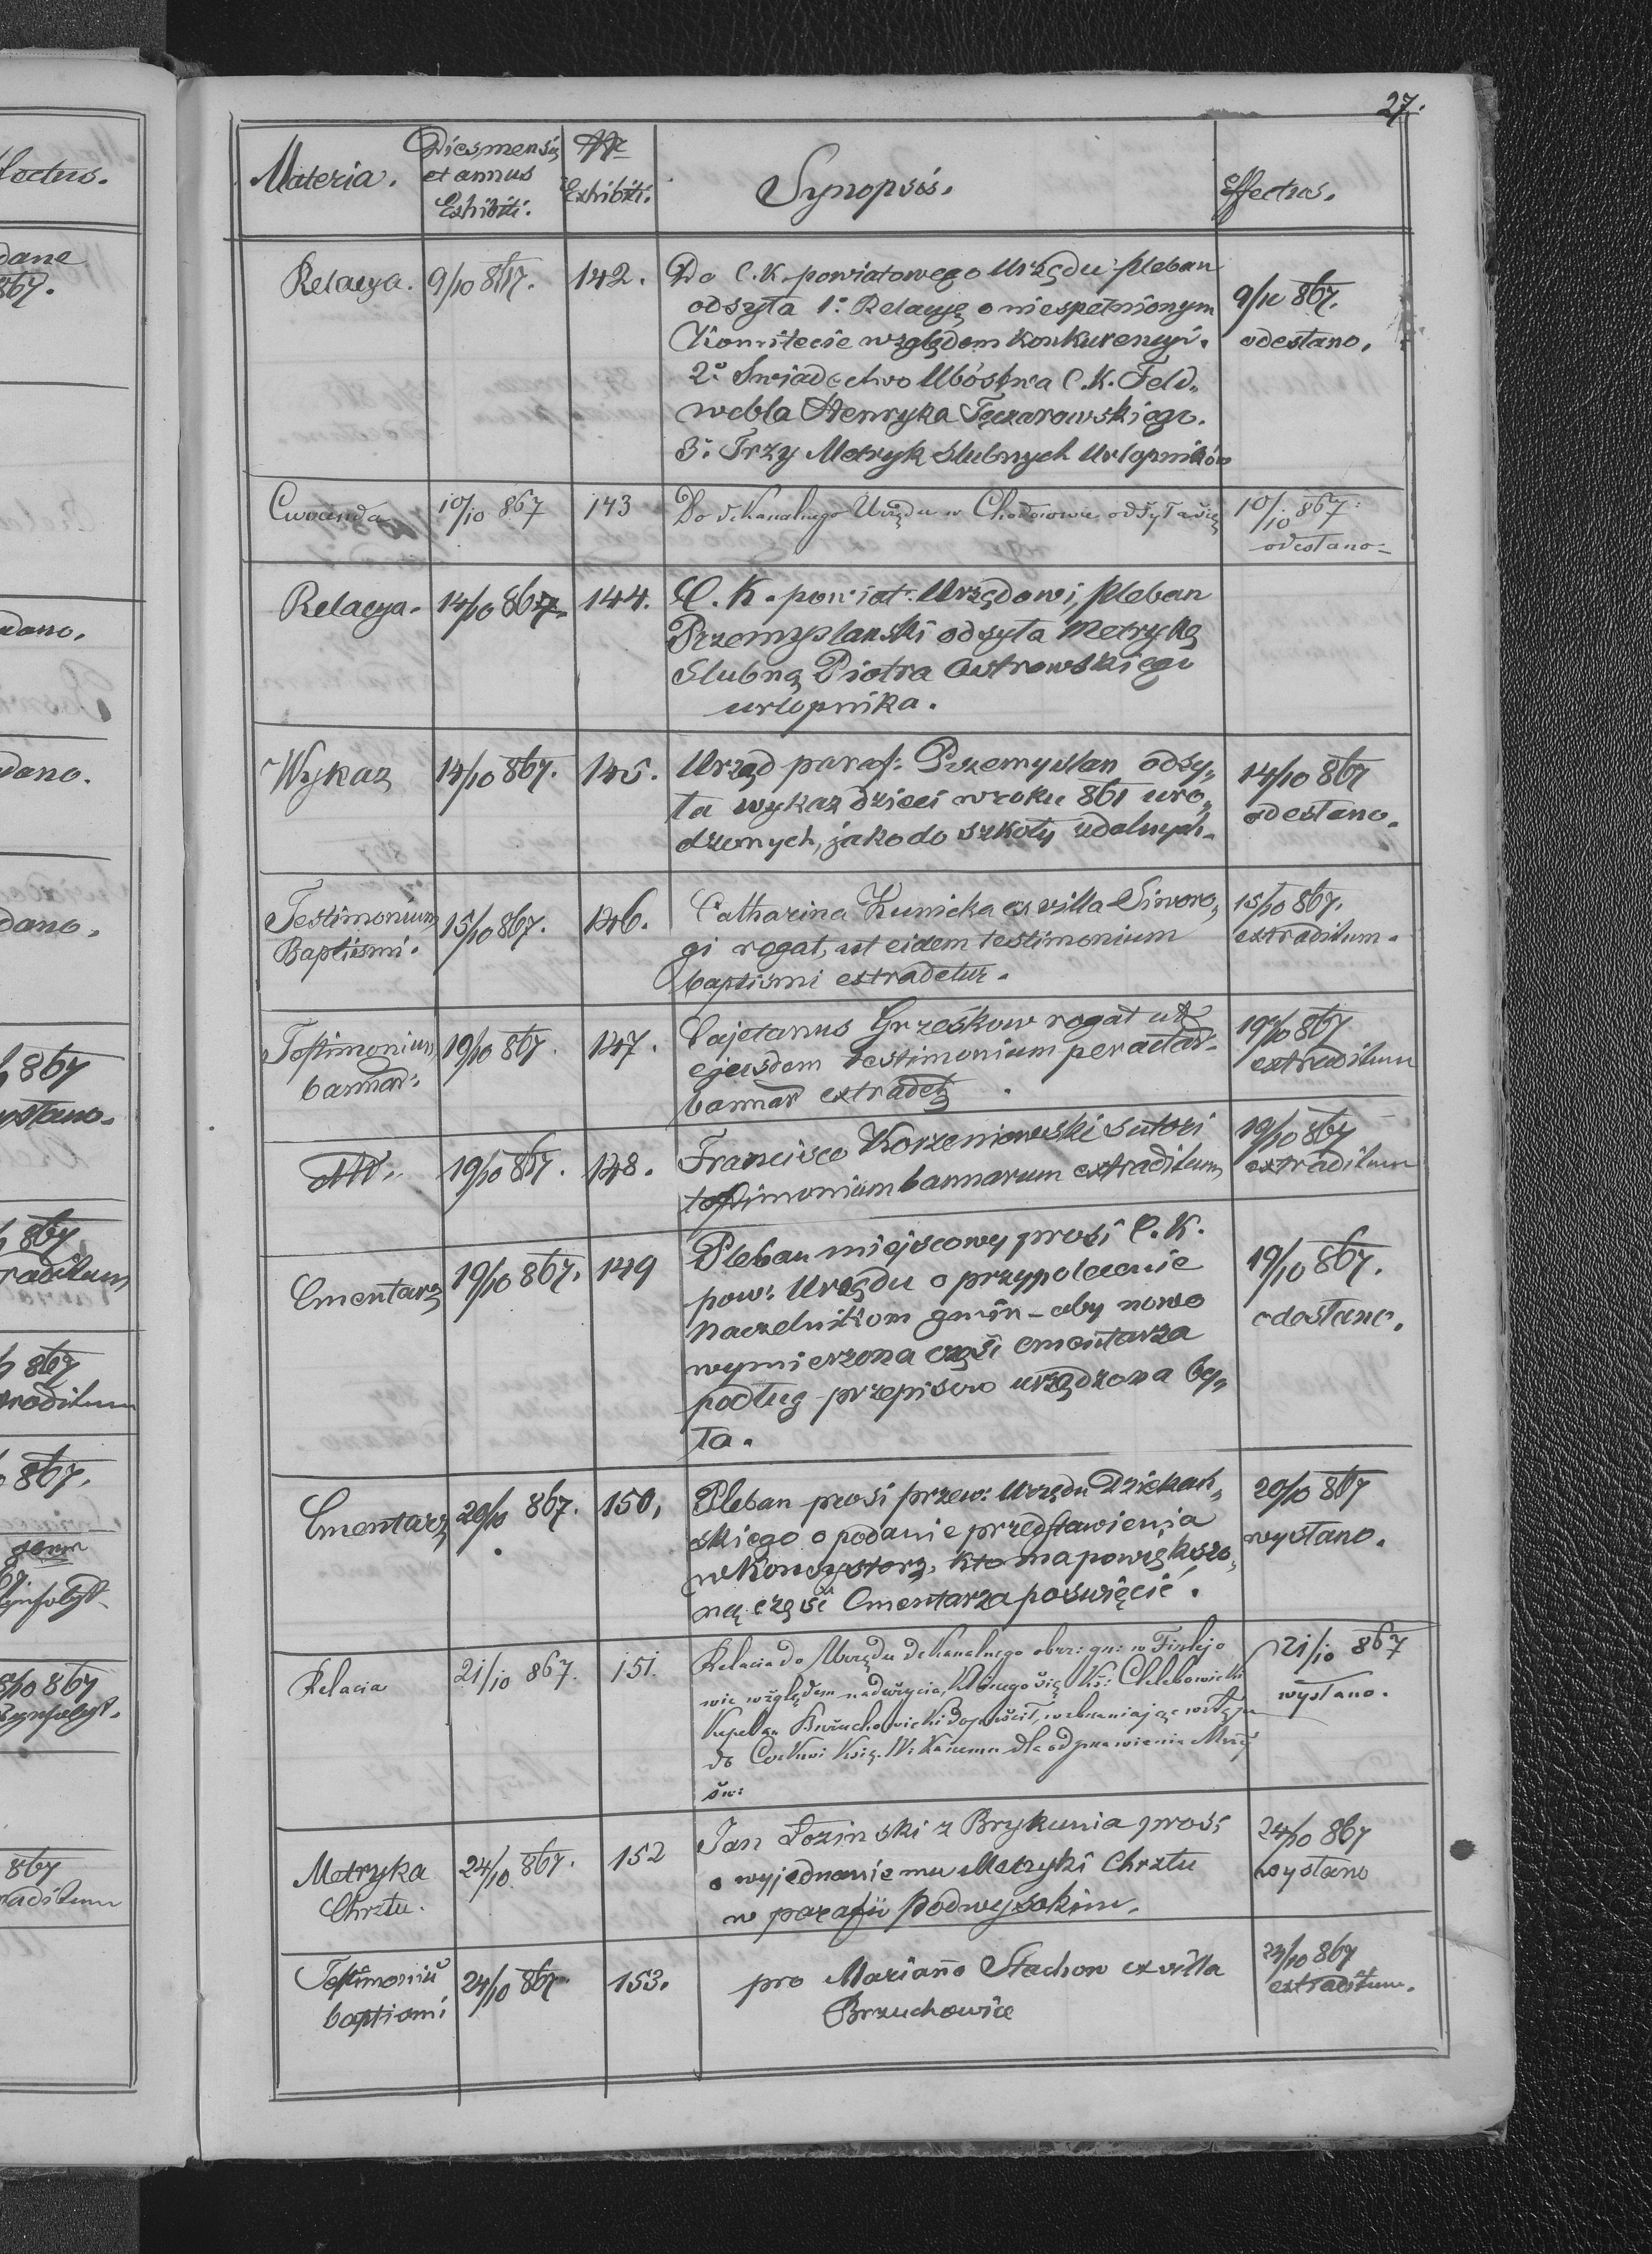 27.
Materia.
Dies, mensis
et annus
Exhibiti.
Nr
Exhibiti.
Synopsis.
Effectus.
Relacya. 9/10 867. 142.
Do C.K. powiatowego Urzędu Pleban
odsyła 1o Relacyę o niespełnionym
Komitecie względem Konkurencyi.
2o Swiadectwo Ubóstwa C.K. Feld„
webla Henryka
3o Trzy Metryk Slubnych Urlopników
9/10 867.
odesłano.
10/10 867 143
Do dekanalnego Urzędu w Chodorowie odsyła się
10/10 867
odesłano
Relacya. 14/10 867. 144.
C. K. powiat: Urzędowi, Pleban
Przemyslanski odsyła Metrykę
Slubną Piotra Ostrowskiego
urlopnika.
Wykaz 14/10 867. 145.
Urząd paraf: Przemyslan odsy„
ła wykaz dzieci w roku 861 uro„
dzonych, jako do szkoły zdalnych.
14/10 867
odesłano.
Testimonium
Baptismi.
15/10 867. 146.
Catharina Kunicka ex villa Siworo„
gi rogat, ut eidem testimonium
baptismi extradetur.
15/10 867.
extraditum.
Testimonium
bannar:
19/10 867. 147.
Cajetanus Grzeskow rogat ut
ejusdem testimonium peractar.
bannar extradet
19/10 867
extraditum
19/10 867. 148.
Francisco Korzeniowski sutori
testimonium bannarum extraditum
19/10 867
extraditum
Cmentarz 19/10 867. 149
Pleban miejscowy prosi C.K.
pow: Urzędu o przypolecenie
Naczelnikom gmin – aby nowo
wymierzona część cmentarza
podług przepisow urządzona by„
ła.
19/10 867.
odesłano.
Cmentarz 20/10 867. 150.
Pleban prosi przew: Urzędu Dziekań„
skiego o podanie przedstawienia
w Konsystorz, kto ma powiększo„
ną część Cmentarza poświęcić.
20/10 867
wysłano.
Relacia 21/10 867. 151.
Relacia do Urzędu dekanalnego obrz: gr: w
wie względem nadużycia, którego się Ks: Chlebowicki
Kapelan Brzuchowicki dopuścił, wzbraniając wstępu
do Cerkwi Księ. Wikaremu dla odprawienia Mszy
św:
21/10 867
wysłano.
Metryka
Chrztu.
24/10 867. 152
Jan Łozinski z Brykunia prosi
o wyjednanie mu Metryki Chrztu
w parafii Podwysokim.
24/10 867
wysłano
Testimoniū
baptismi
24/10 867 153.
pro Marianno Stachow ex villa
Brzuchowice
24/10 867
extraditum.